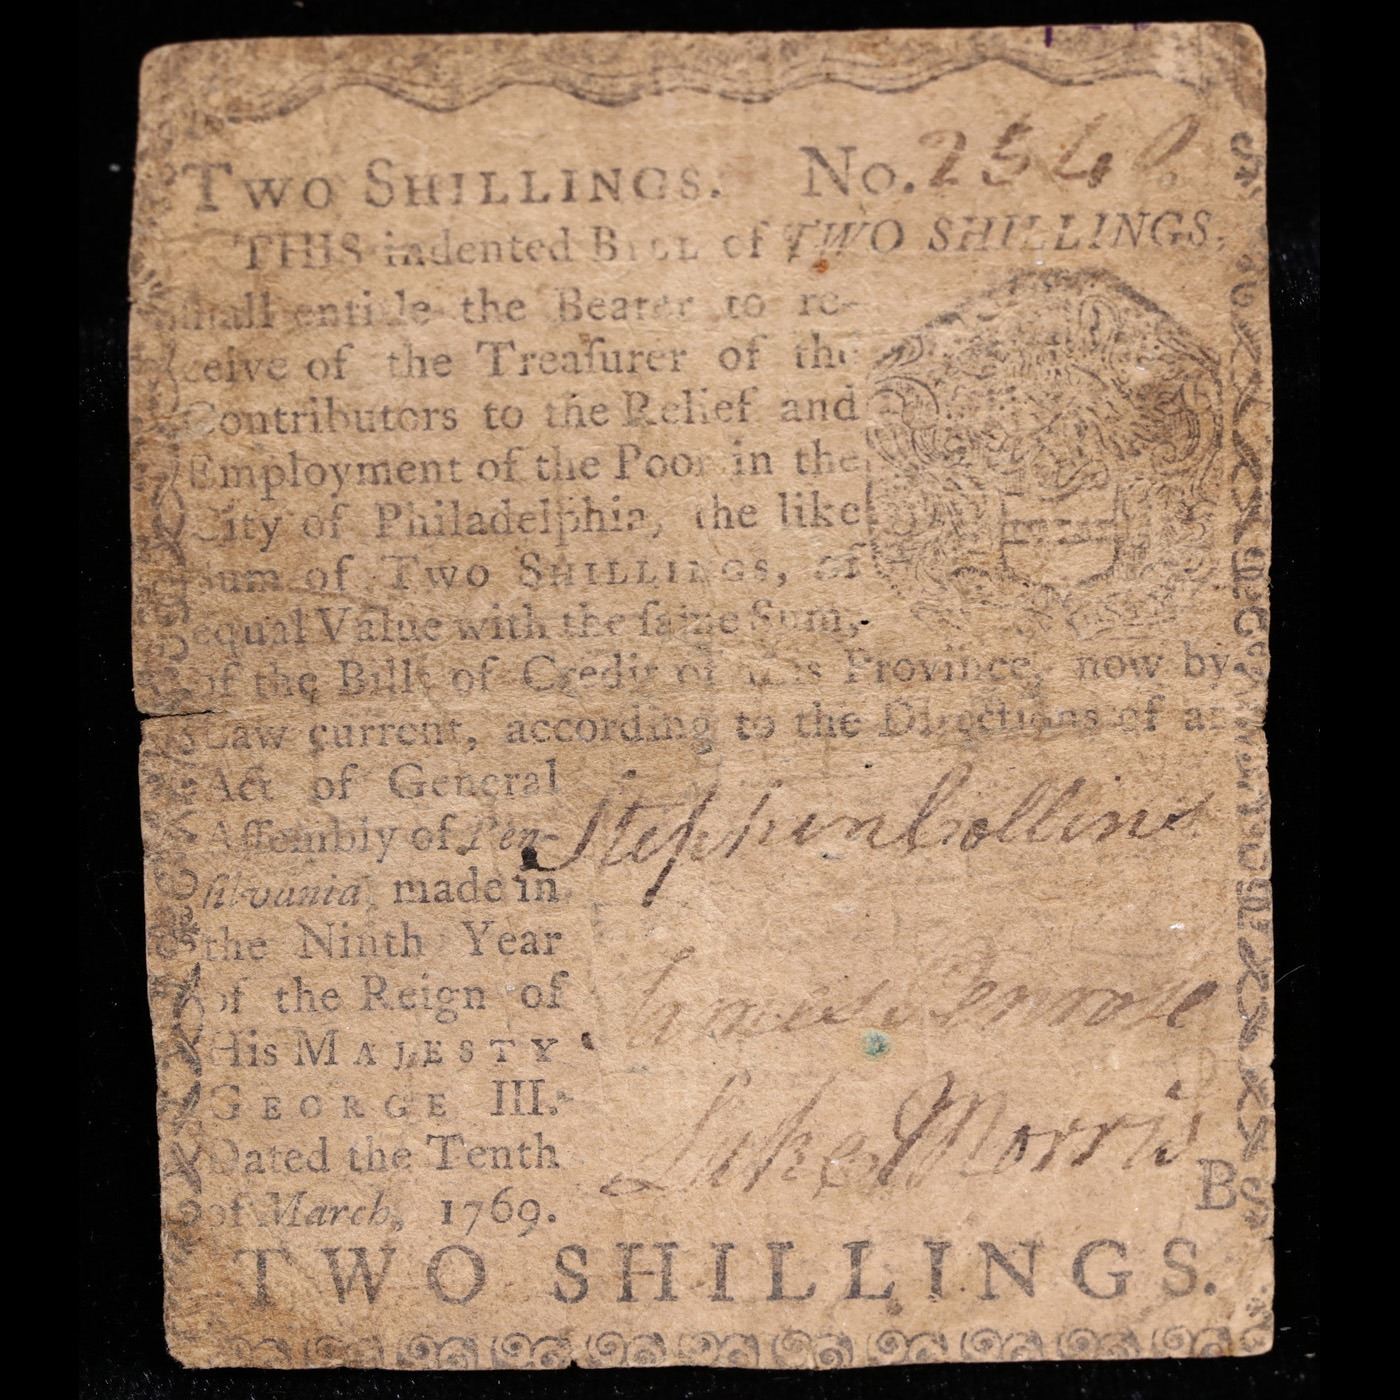 TWO SHILLINGS. No. 2540
THIS indented BILL of TWO SHILLINGS,
shall entitle the Bearer to re-
ceive of the Treaſurer of the
Contributors to the Relief and
Employment of the Poor in the
City of Philadelphia, the like
Sum of TWO SHILLINGS, or
equal Value with the ſame Sum,
of the Bills of Credit of this Province, now by
Law current, according to the Directions of an
Act of General
Aſſembly of Pen-
ſilvania, made in
the Ninth Year
of the Reign of
His MAJESTY
GEORGE III.
Dated the Tenth
of March, 1769.
Stephen Collins
James Penrose
Luke Morris
B
TWO SHILLINGS.